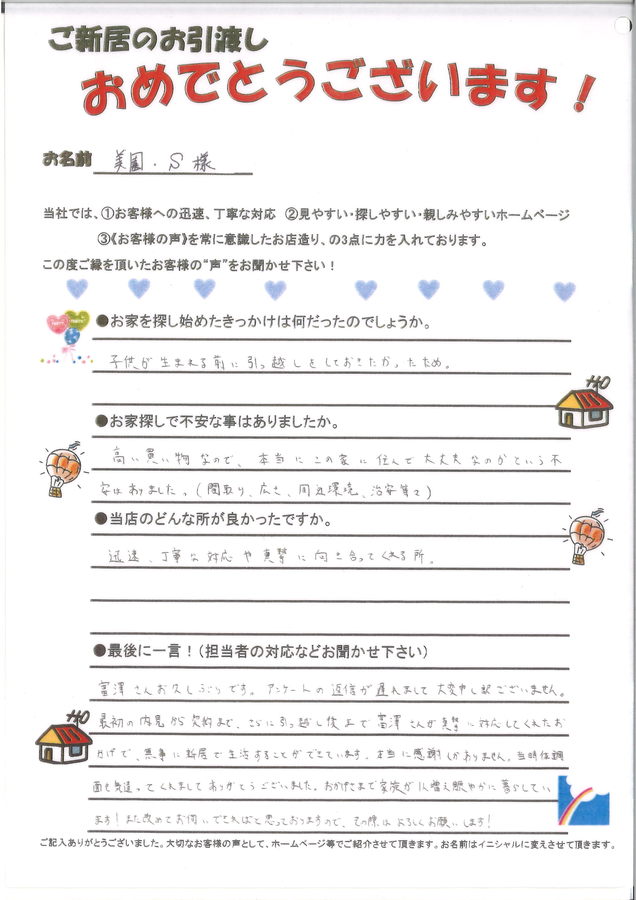 ご新居のお引渡し
おめでとうございます!
お名前 美園・S 様
当社では、①お客様への迅速、丁寧な対応 ②見やすい・探しやすい・親しみやすいホームページ
③《お客様の声》を常に意識したお店造り、の3点に力を入れております。
この度ご縁を頂いたお客様の“声”をお聞かせ下さい!
●お家を探し始めたきっかけは何だったのでしょうか。
子供が生まれる前に引っ越しをしておきたかったため。
●お家探しで不安な事はありましたか。
高い買い物なので、本当にこの家に住んで大丈夫なのかという不
安はありました。(間取り、広さ、周辺環境、治安等々)
●当店のどんな所が良かったですか。
迅速、丁寧な対応や真摯に向き合ってくれる所。
●最後に一言!(担当者の対応などお聞かせ下さい)
富澤さんお久しぶりです。アンケートの返信が遅れまして大変申し訳ございません。
最初の内見から契約まで、さらに引っ越し後まで富澤さんが真摯に対応してくれたお
かげで、無事に新居で生活することができています。本当に感謝しかありません。当時体調
面も気遣ってくれましてありがとうございました。おかげさまで家族が1人増え賑やかに暮らしてい
ます!また改めてお伺いできればと思っておりますので、その際はよろしくお願いします!
ご記入ありがとうございました。大切なお客様の声として、ホームページ等でご紹介させて頂きます。お名前はイニシャルに変えさせて頂きます。